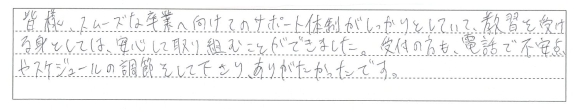 皆様、スムーズな卒業へ向けてのサポート体制がしっかりとしていて、教習を受け
る身としては、安心して取り組むことができました。受付の方も、電話で不安点
やスケジュールの調節をして下さり、ありがたかったです。